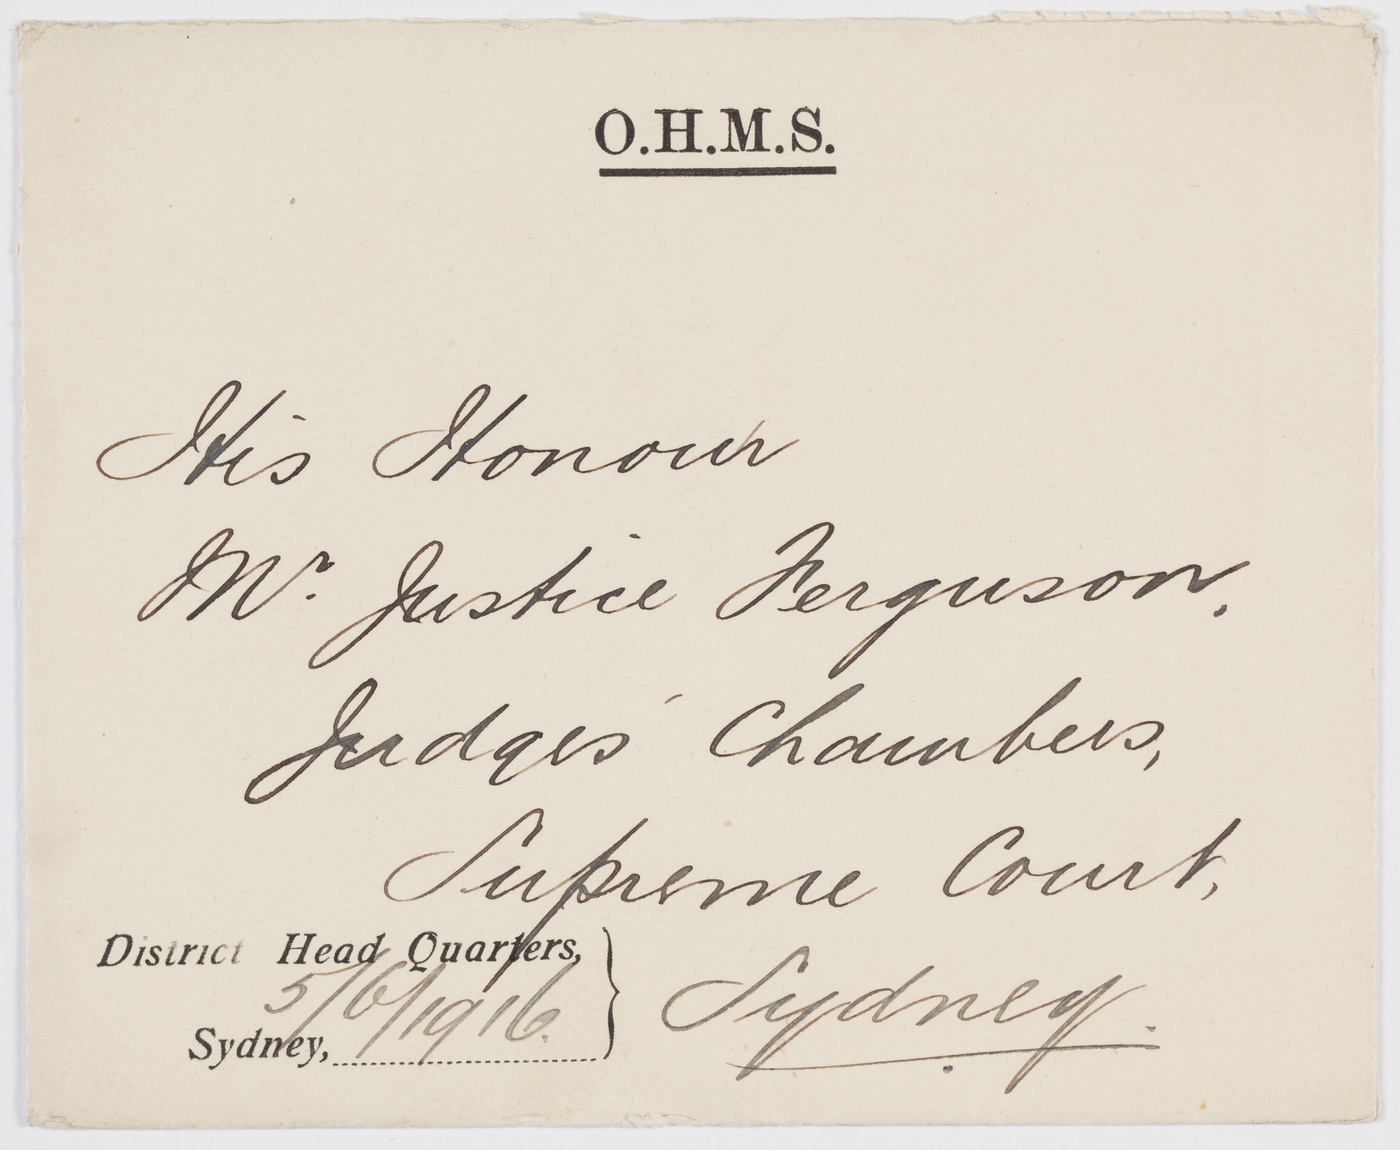 O.H.M.S.
His Honour
Mr. Justice Ferguson,
Judges' Chambers,
Supreme Court,
Sydney.
District Head Quarters,
5/6/1916.
Sydney,